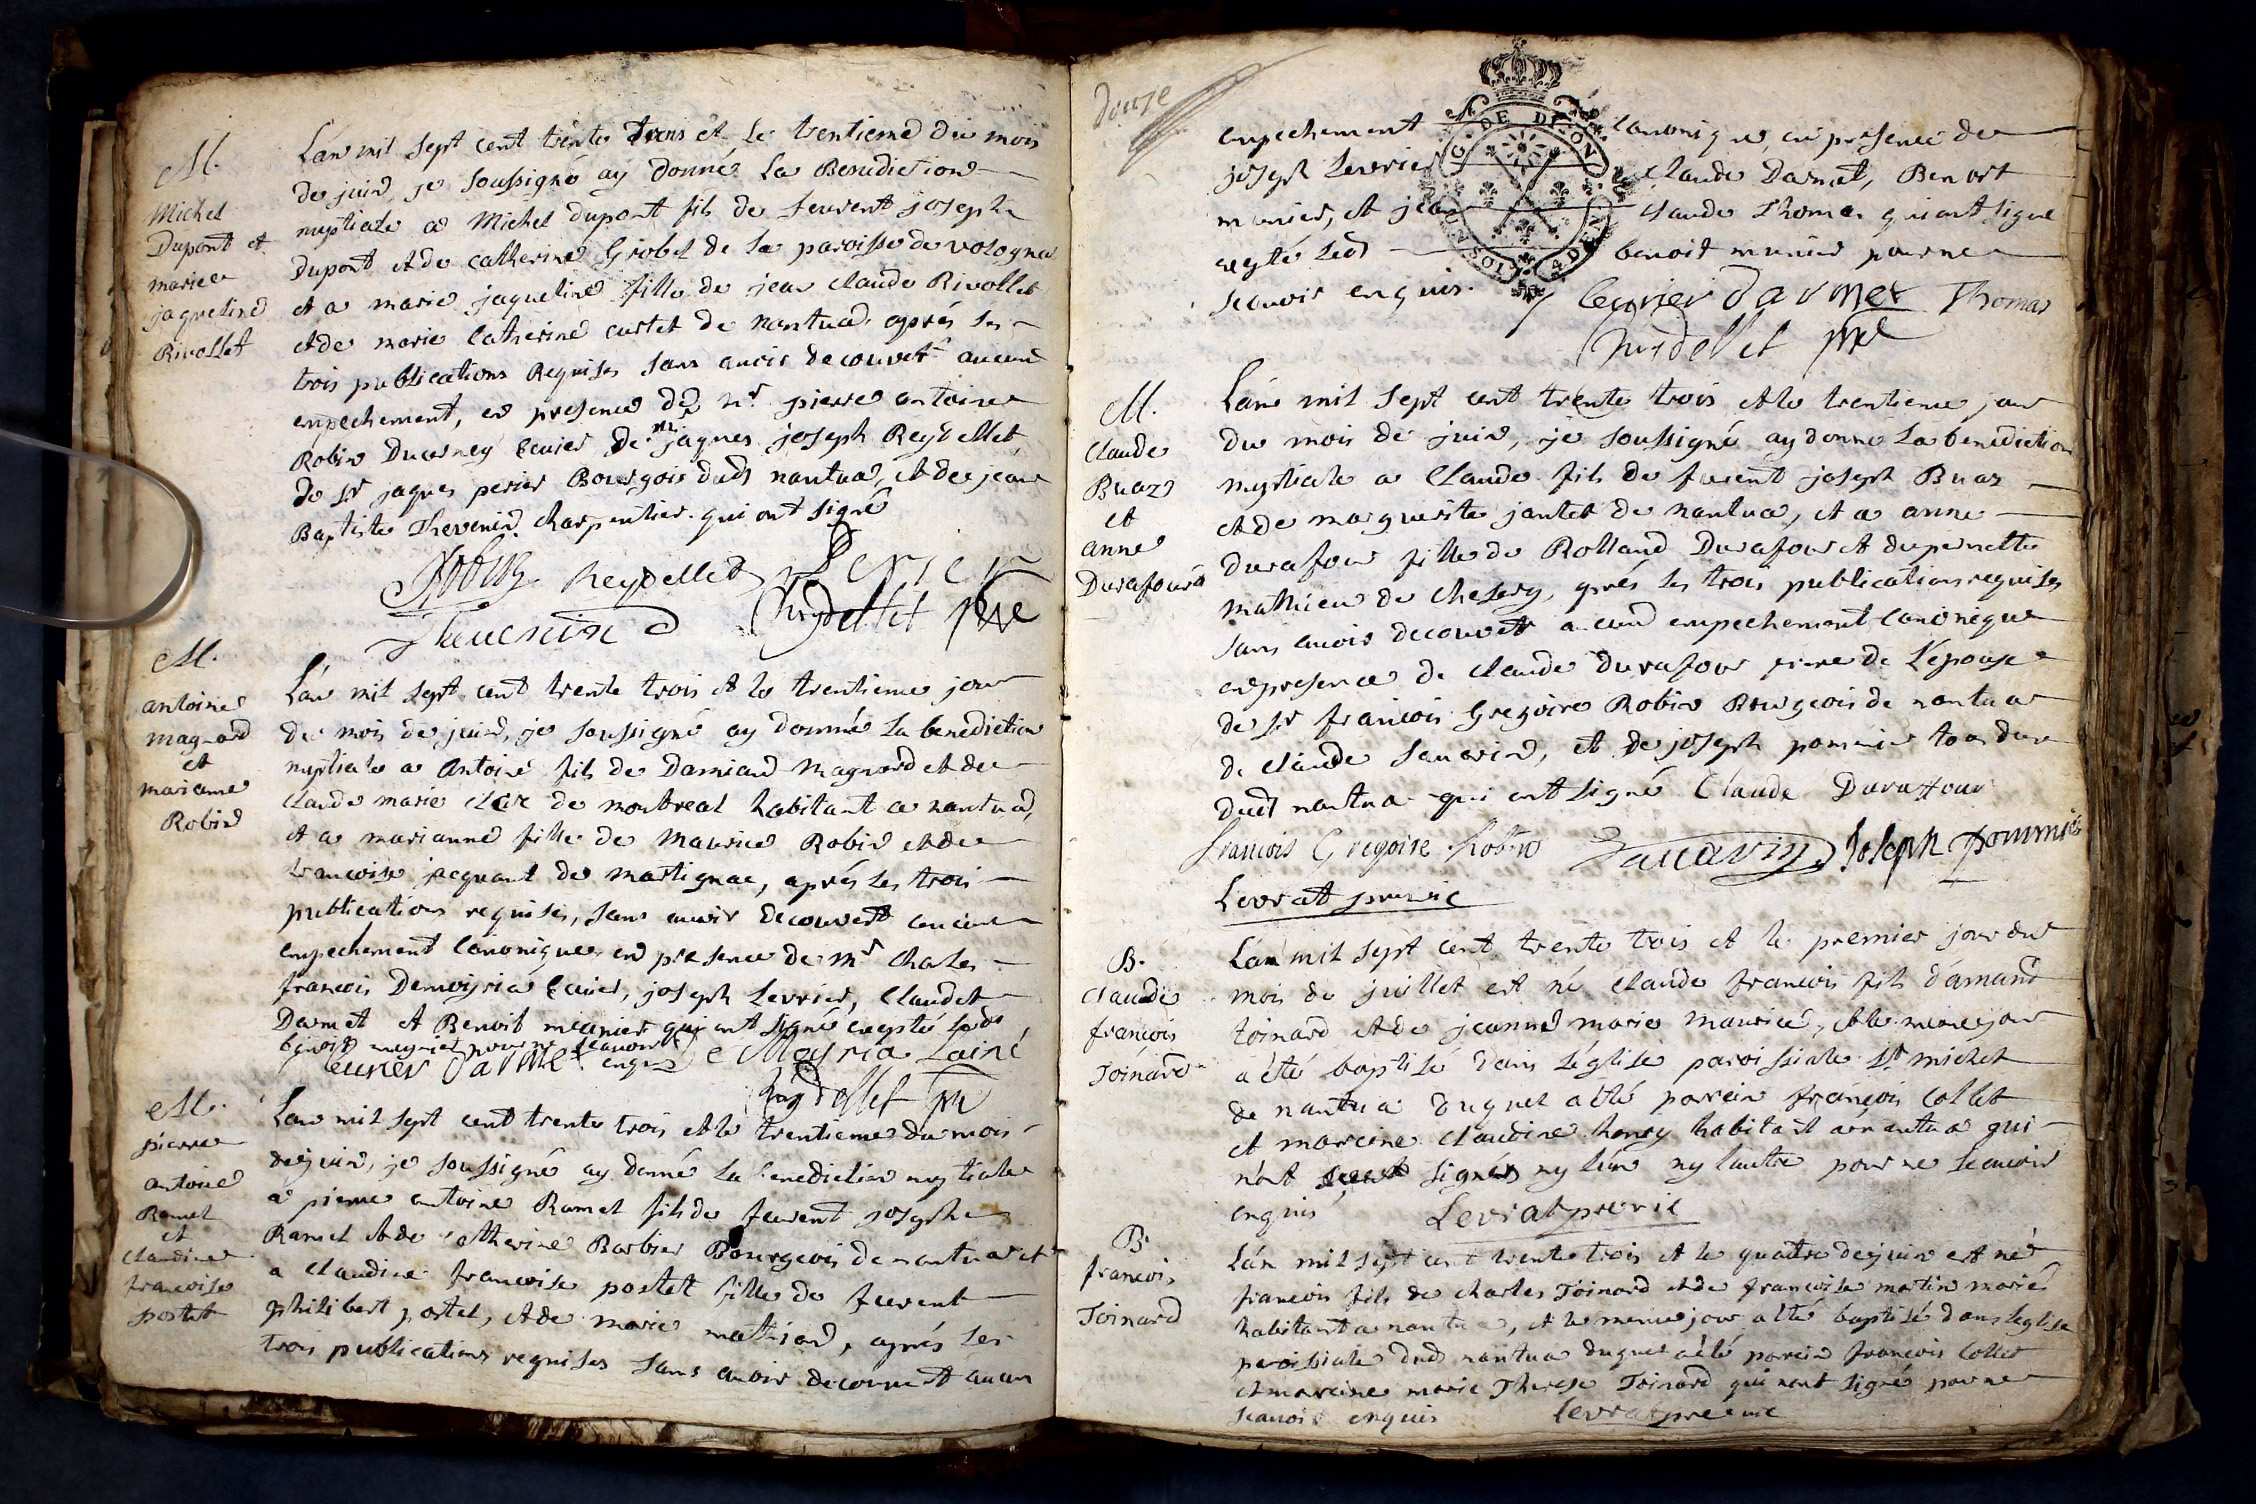 M.
Michel
Dupont et
marie
jaqueline
Rivollet
L'an mil sept cent trente trois et le trentieme du mois
de juin, je soussigné ay donné la Benediction
nuptiale a Michel dupont fils de feuvent joseph
dupont et de catherine Grobet de la paroisse de vologna
et a marie jaqueline fille de jean claude Rivollet
et de marie Catherine curtet de nantua, aprés les
trois publications Requises sans avoir decouvert aucun
enpechement, en presence de mr. pierre antoine
Robin Ducorney Ecuier de mr jaques joseph Reydellet
de sr jaques perier Bourgois dudt nantua, et de jean
Baptiste Thevenin charpentier qui ont signé
Robin Reydellet Perier
Thevenin Reydellet
M.
antoine
magnard
et
marianne
Robin
L'an mil sept cent trente trois et le trentieme jour
du mois de juin, je soussigné ay donné la benediction
nuptiale a Antoine fils de Damian Magnard et de
Claude marie clerc de montreal habitant a nantua,
et a marianne fille de Maurice Robin et de
francoise jaquant de martignac, aprés les trois
publications requises, sans avoir decouvert aucun
enpechement Canonique en presence de mr Charles
francois Demoyria Ecuier, joseph Levrier, Claude
Darmet et Benoit meunier qui ont signé exepté ledt
benoit meunier pour ne scavoir
Levrier Darmet enquis Moyria Lainé
M.
pierre
antoine
Ramel
et
claudine
francoise
postet
L'an mil sept cent trente trois et le trentieme du mois
de juin, je soussigné ay donné la benediction nuptiale
a pierre antoine Ramel fils de feuvent joseph
Ramel et de catherine Barbier Bourgeois de nantua et
a claudine francoise postet fille de feuvent
philibert postet, et de marie mathiard, aprés les
trois publications requises sans avoir decouvert aucun
douze
enpechement canonique, en presence de
joseph Levrier Claude Darmet, Benoit
munier, et jean claude Thomas qui ont signé
exepté ledt benoit munier pour ne
scavoir enquis. Levrier Darmet Thomas
G. DE DIJON
M.
Claude
Buaz
et
anne
Durafour
L'an mil sept cent trente trois et le trentieme jour
du mois de juin, je soussigné ay donné la benediction
nuptiale a Claude fils de feuvent joseph Buaz
et de marguerite jantet de nantua, et a anne
durafour fille de Rolland Durafour et de pernette
mathieu de Chesery, aprés les trois publications requises
sans avoir decouvert aucun empechement Canonique
en presence de claude durafour frere de l'epouse
de sr francois Gregoire Robin Bourgeois de nantua
de claude Sauvrin, et de joseph pommier tondeur
dudt nantua qui ont signé Claude Duraffour
francois Gregoire Robin Joseph pommié
Levrat previc
B.
Claude
françois
Toinard
L'an mil sept cent trente trois et le premier jour du
mois de juillet est né claude francois fils d'amand
toinard et de jeanne marie maurice, et le meme jour
a été baptisé dans l'eglise paroissiale st michel
de nantua duquel a été parein françois Collet
et mareine claudine henry habitant a nantua qui
n'ont signés ny l'un ny l'autre pour ne scavoir
enquis Levrat previc
B.
francois
Toinard
L'an mil sept cent trente trois et le quatre de juin est né
francois fils de charles Toinard et de francoise martin mariés
habitant a nantua, et le meme jour a été baptisé dans leglise
paroissiale dudt nantua duquel a été parein francois Collet
et mareine marie Therese Toinard qui n'ont signé pour ne
scavoir enquis Levrat previc